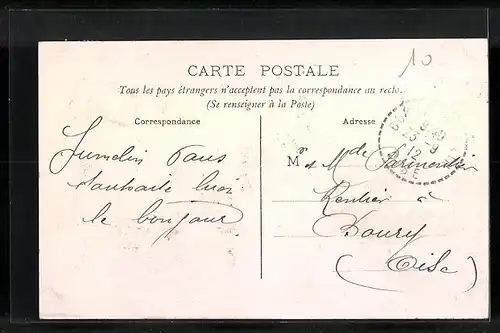 10
CARTE POSTALE
Tous les pays étrangers n'acceptent pas la correspondance au recto
(Se renseigner à la Poste)
Correspondance
Adresse
Jumelin Paus
souhaite bien
le bonjour
Mr et Mde Sarmentin
Rentier à
Boury
(Oise)